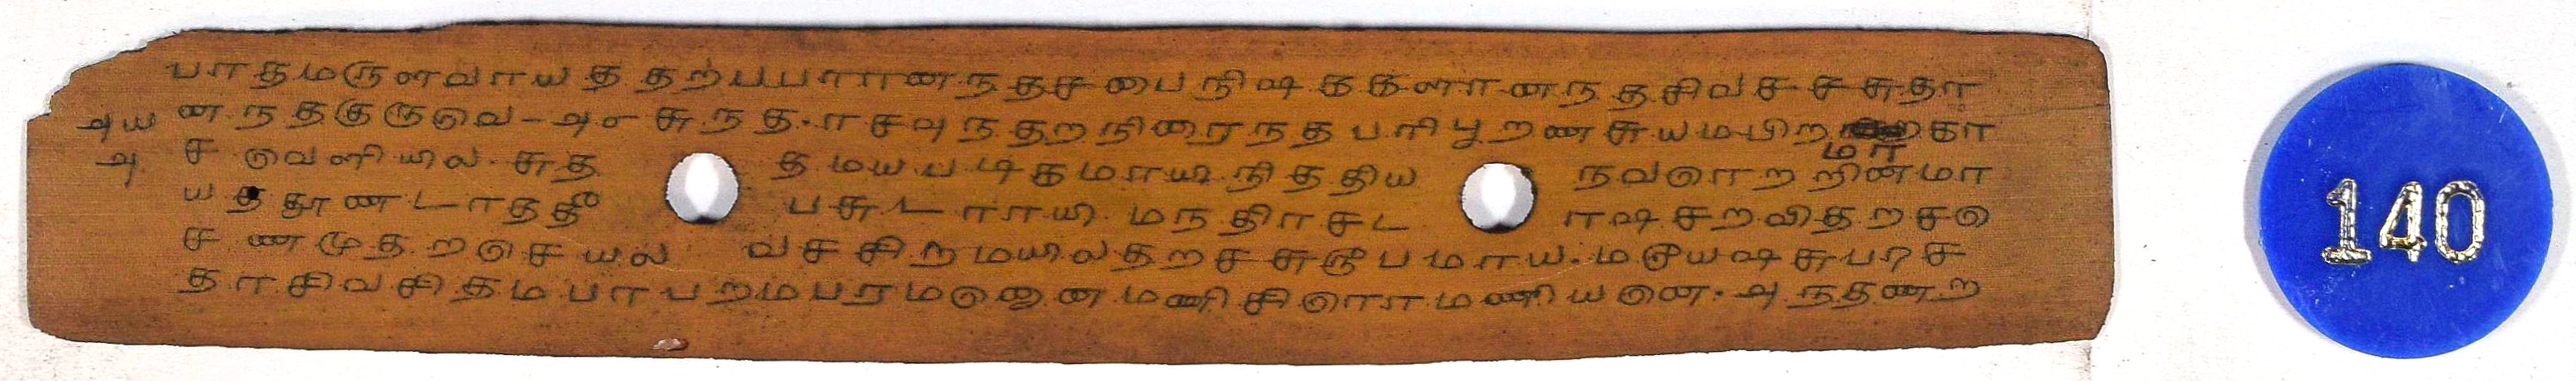 பாதமருளவாயத தற்பபராானநதசபை நிஷ ககளானநதசிவச சசுதா
அய னநதகுருவெ - அ௦ சுநத.ாசவுநதறநிரைநத பாிபூறணசுயமபிற காமா
அ ச வெளியில. சுத தமயபடிகமாயி. நிததிய நவொறறினமா
யத தூணடாததீ பசுடாாயி. மநதிாசட ாஷசறவிதறசெ
ச ணமுதறசெயல வசசிறமயிலதறசசுரூபமாய. மரீயஷசுபாிச
தாசிவசிதமபாபறமபரமனெனமணிசிரொமணியனெ. அநதணற
140